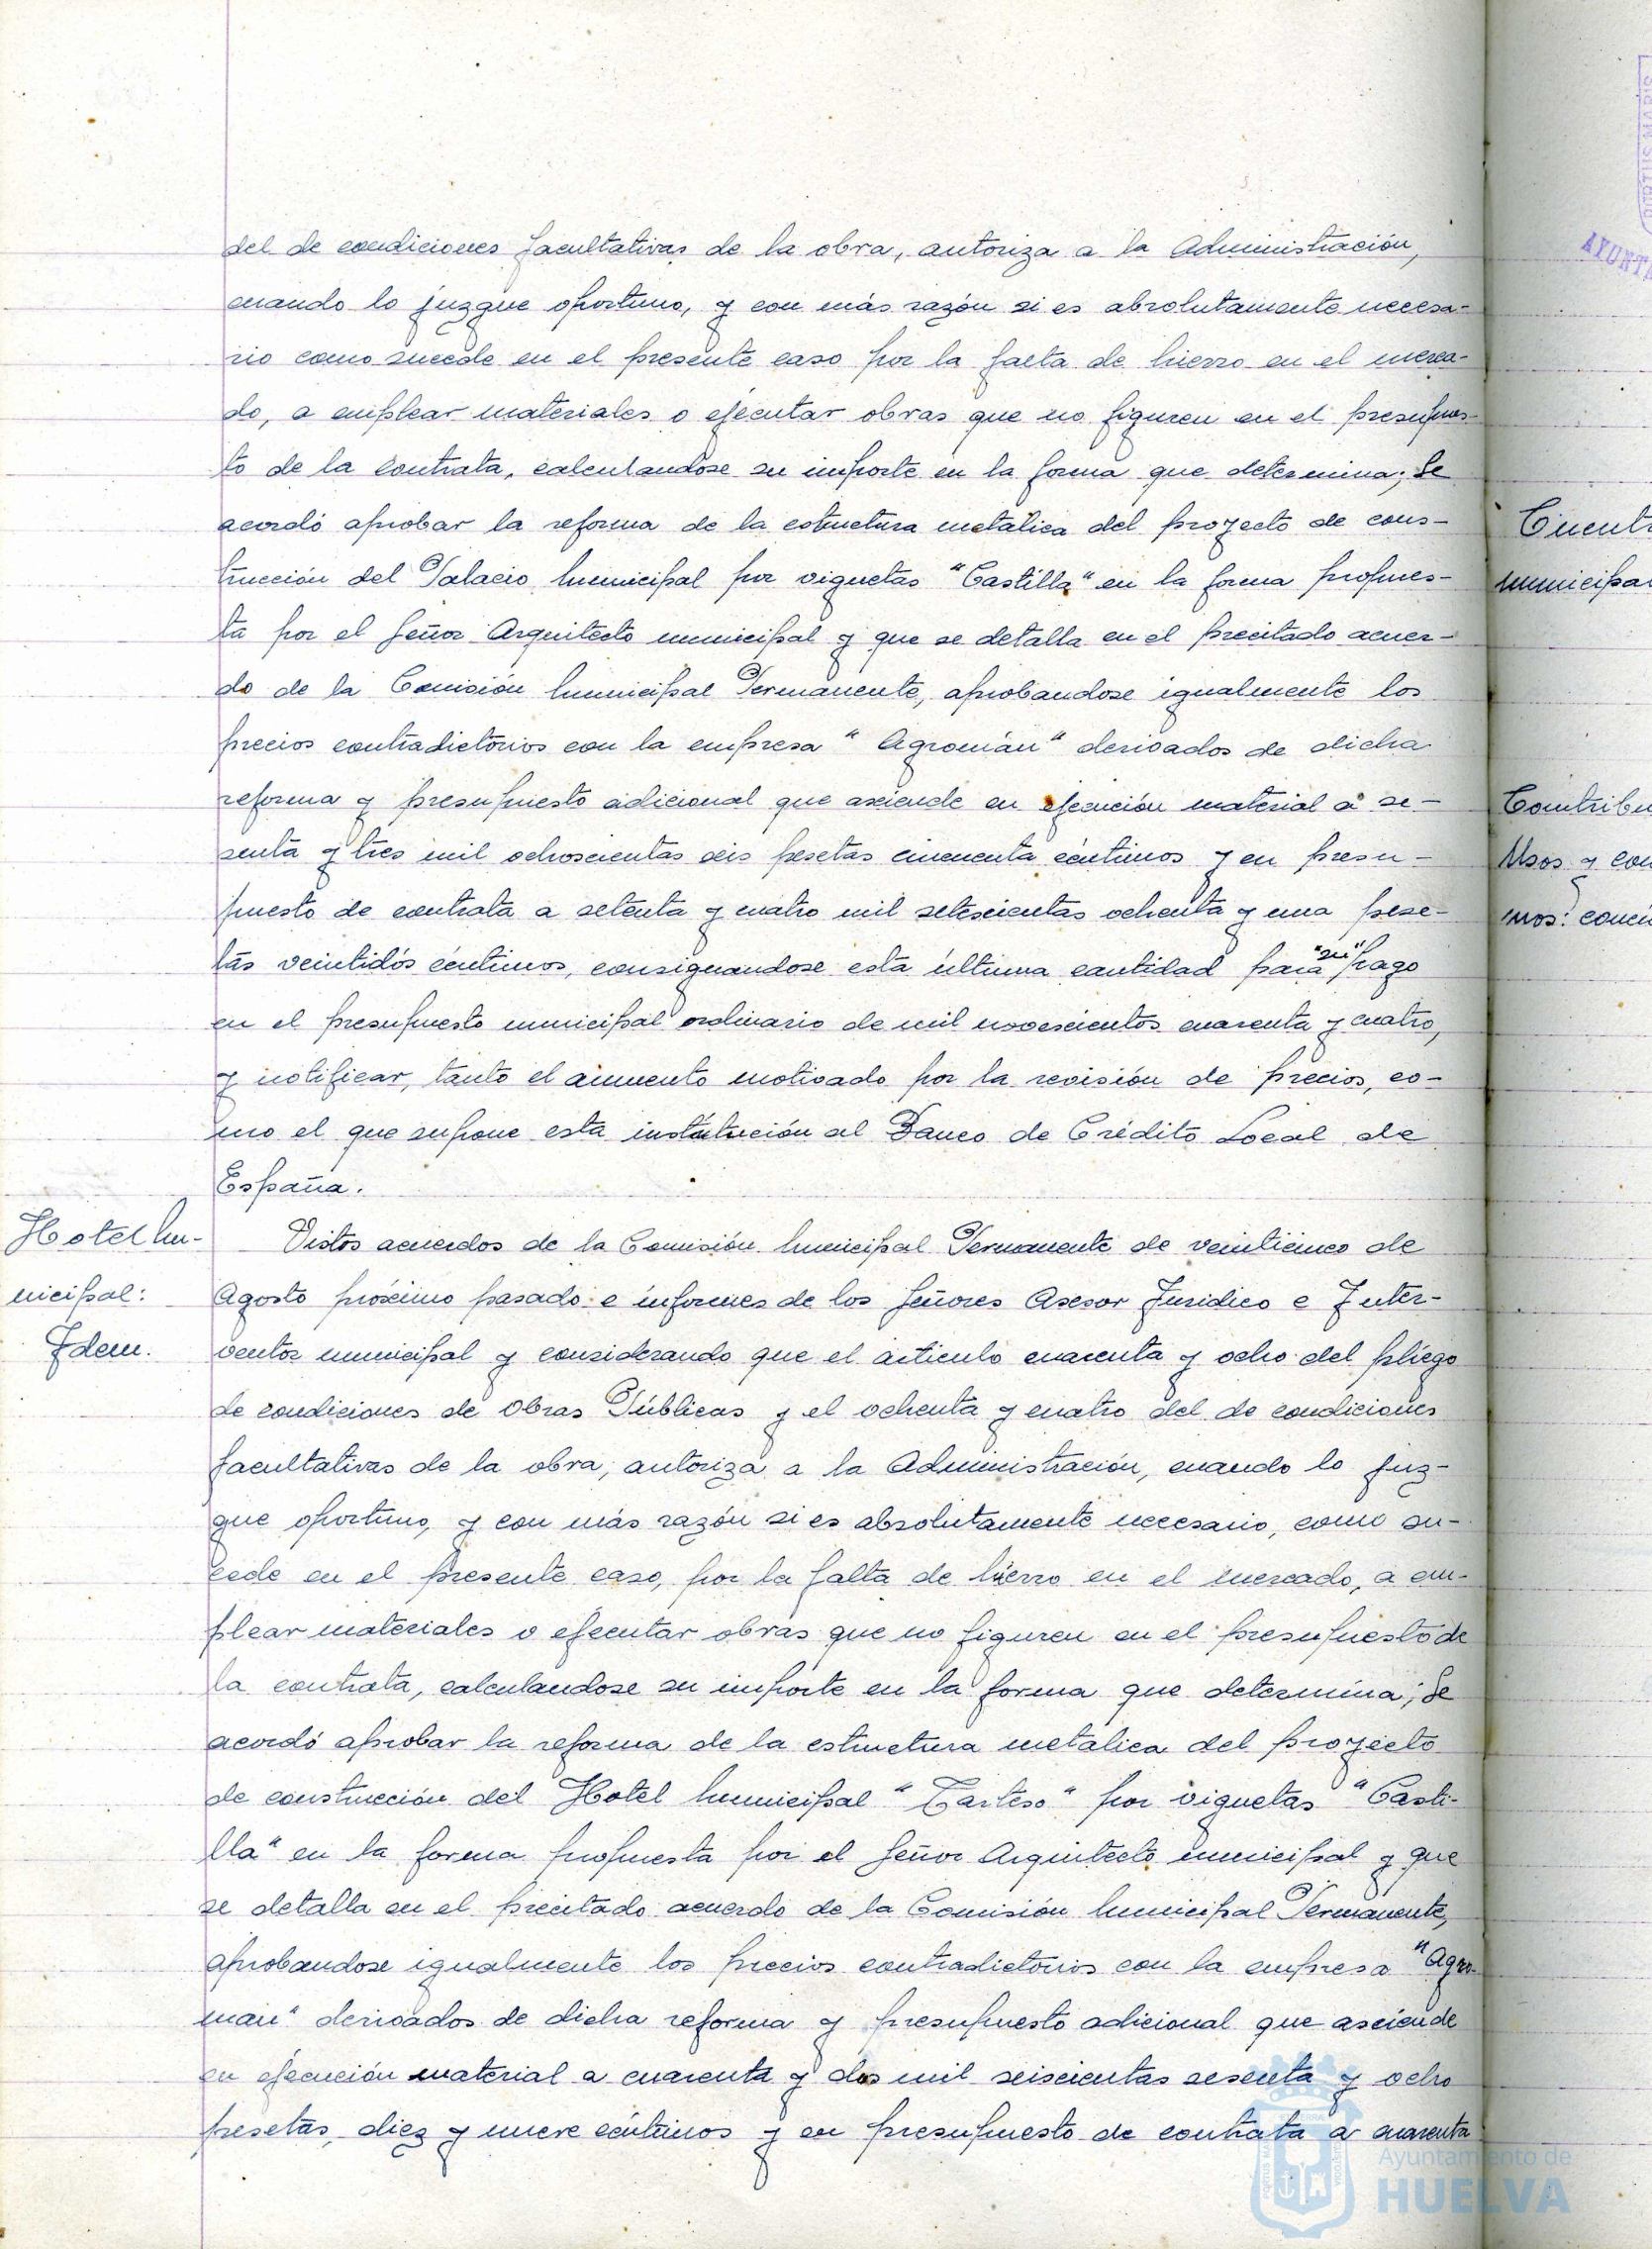 del de condiciones facultativas de la obra, autoriza a la Administración,
cuando lo juzgue oportuno, y con más razón si es absolutamente necesa-
rio como sucede en el presente caso por la falta de hierro en el merca-
do, a emplear materiales o ejecutar obras que no figuren en el presupues-
to de la contrata, calculandose su importe en la forma que determina; Se
acordó aprobar la reforma de la estructura metalica del proyecto de cons-
trucción del Palacio Municipal por viguetas "Castilla" en la forma propues-
ta por el Señor Arquitecto municipal y que se detalla en el precitado acuer-
do de la Comisión Municipal Permanente, aprobandose igualmente los
precios contradictorios con la empresa "Agromán" derivados de dicha
reforma y presupuesto adicional que asciende en ejecución material a se-
senta y tres mil ochoscientas seis pesetas cincuenta céntimos y en presu-
puesto de contrata a setenta y cuatro mil setescientas ochenta y una pese-
tas veintidós céntimos, consignandose esta última cantidad para "su" pago
en el presupuesto municipal ordinario de mil novescientos cuarenta y cuatro,
y notificar, tanto el aumento motivado por la revisión de precios, co-
mo el que supone esta institución al Banco de Crédito Local de
España.
Hotel Mu-
nicipal:
Idem.
Vistos acuerdos de la Comisión Municipal Permanente de veinticinco de
Agosto próximo pasado e informes de los Señores Asesor Jurídico e Inter-
ventor municipal y considerando que el articulo cuarenta y ocho del pliego
de condiciones de Obras Públicas y el ochenta y cuatro del de condiciones
facultativas de la obra, autoriza a la Administración, cuando lo juz-
gue oportuno, y con más razón si es absolutamente necesario, como su-
cede en el presente caso, por la falta de hierro en el mercado, a em-
plear materiales o ejecutar obras que no figuren en el presupuesto de
la contrata, calculandose su importe en la forma que determina; Se
acordó aprobar la reforma de la estructura metalica del proyecto
de construcción del Hotel Municipal "Tarteso" por viguetas "Casti-
lla" en la forma propuesta por el Señor Arquitecto municipal y que
se detalla en el precitado acuerdo de la Comisión Municipal Permanente,
aprobandose igualmente los precios contradictorios con la empresa "Agro-
man" derivados de dicha reforma y presupuesto adicional que asciende
en ejecución material a cuarenta y dos mil seiscientas sesenta y ocho
pesetas, diez y nueve céntimos y en presupuesto de contrata a cuarenta
Ayuntamiento de
HUELVA
municipal
Usos y con
mos: